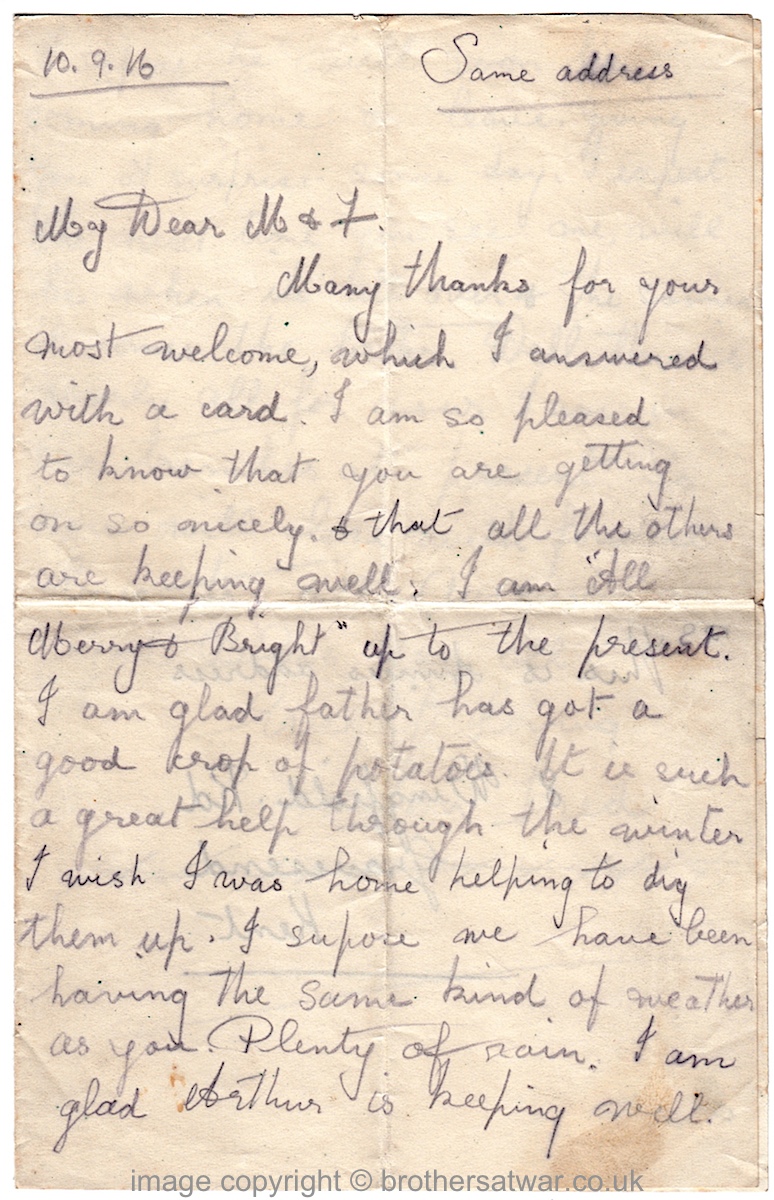 10.9.16
Same address
My Dear M & F.
Many thanks for your
most welcome, which I answered
with a card. I am so pleased
to know that you are getting
on so nicely. & that all the others
are keeping well. I am "All
Merry & Bright" up to the present.
I am glad father has got a
good crop of potatois. It is such
a great help through the winter
I wish I was home helping to dig
them up. I supose we have been
having the same kind of weather
as you. Plenty of rain. I am
glad Arthur is keeping well.
image copyright © brothersatwar.co.uk